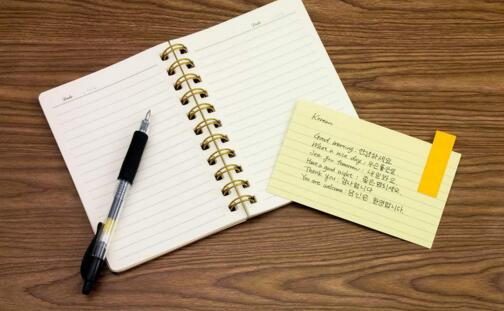 Date
Date
Korean
Good morning : 안녕하세요
What a nice day : 무슨좋은날
See you tomorrow : 내일봐요
Have a good night : 좋은 밤되세요.
Thank you : 감사합니다
You are welcome : 당신은 환영합니다.